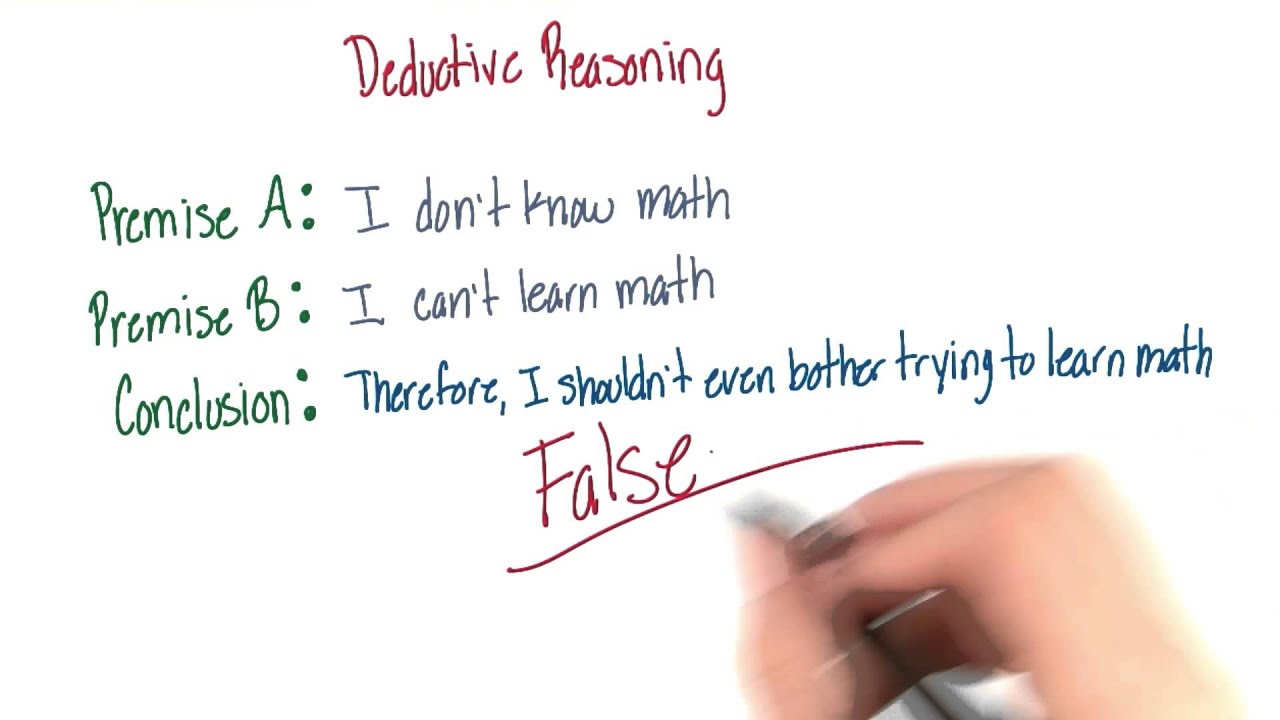 Deductive Reasoning
Premise A: I don't know math
Premise B: I can't learn math
Conclusion: Therefore, I shouldn't even bother trying to learn math
False